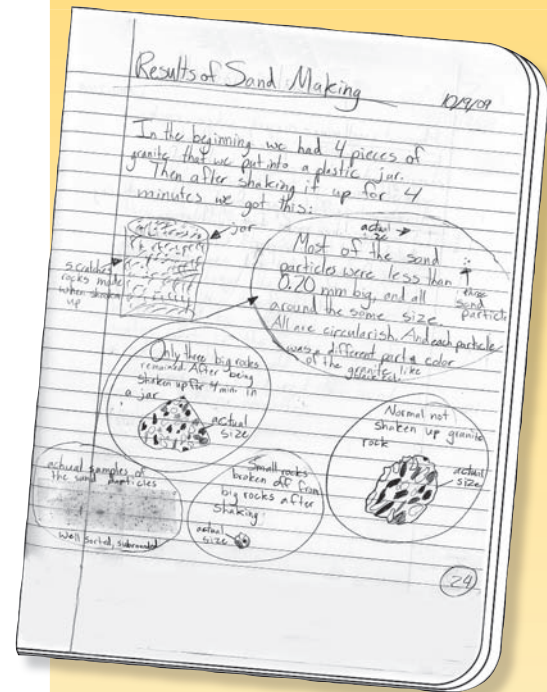 Results of Sand Making
10/9/09
In the beginning we had 4 pieces of
granite that we put into a plastic jar.
Then after shaking it up for 4
minutes we got this:
jar
scratches
rocks made
when shaken
up
actual
size
Most of the sand
particles were less than
0.20 mm big, and all
around the same size.
All are circularish. And each particle
was a different part & color
of the granite, like
sand
particle
Only three big rocks
remained. After being
shaken up for 4 min in
a jar
actual
size
Normal not
shaken up granite
rock
actual
size
actual samples of
the sand particles
well sorted, subrounded
Small rocks
broken off from
big rocks after
shaking.
actual
size
24